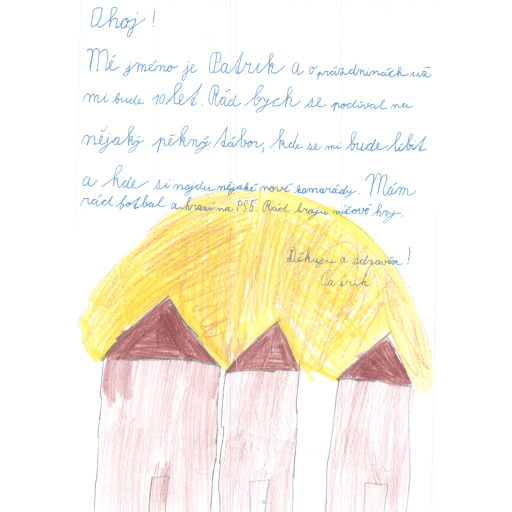 Ahoj!
Mé jméno je Patrik a o prázdninách už
mi bude 10 let. Rád bych se podíval na
nějaký pěkný tábor, kde se mi bude líbit
a kde si najdu nějaké nové kamarády. Mám
rád fotbal a hraní na PS5. Rád hraju míčové hry.
Děkuji a zdravím!
Patrik